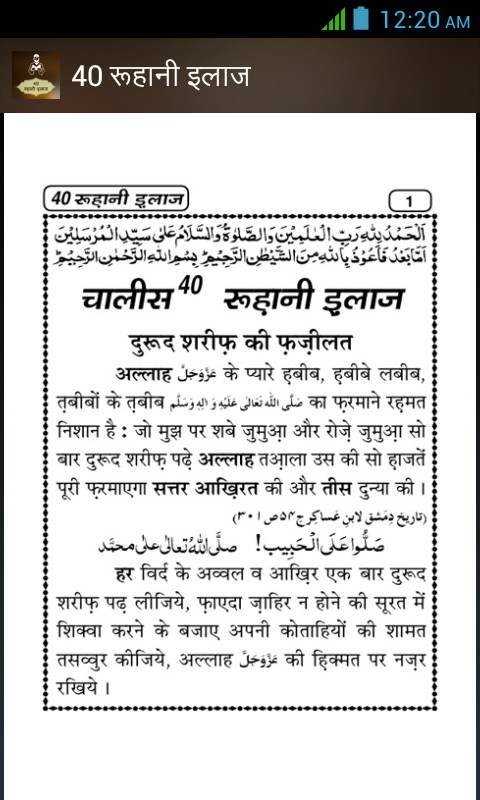 12:20 AM
40 रूहानी इलाज
40 रूहानी इलाज
1
اَلْحَمْدُ لِلّٰہِ رَبِّ الْعٰلَمِیْنَ وَالصَّلٰوۃُ وَالسَّلَامُ عَلٰی سَیِّدِ الْمُرْسَلِیْنَ
اَمَّا بَعْدُ فَاَعُوْذُ بِاللّٰہِ مِنَ الشَّیْطٰنِ الرَّجِیْمِ ؕ بِسْمِ اللّٰہِ الرَّحْمٰنِ الرَّحِیْمِ ؕ
चालीस 40 रूह़ानी इलाज
दुरूद शरीफ़ की फ़ज़ीलत
अल्लाह عَزَّوَجَلَّ के प्यारे ह़बीब, ह़बीबे लबीब,
त़बीबों के त़बीब صَلَّی اللہُ تَعَالٰی عَلَیْہِ وَاٰلِہٖ وَسَلَّم का फ़रमाने रह़मत
निशान है : जो मुझ पर शबे जुमुआ़ और रोज़े जुमुआ़ सो
बार दुरूद शरीफ़ पढ़े अल्लाह तआ़ला उस की सो ह़ाजतें
पूरी फ़रमाएगा सत्तर आख़िरत की और तीस दुन्या की ।
(تاریخ دِمَشق لابنِ عَساکِر ج ۵۴ ص ۳۰۱)
صَلُّوْا عَلَی الْحَبِیْب! صلَّی اللہُ تعالٰی علٰی محمَّد
हर विर्द के अव्वल व आख़िर एक बार दुरूद
शरीफ़ पढ़ लीजिये, फ़ाएदा ज़ाहिर न होने की सूरत में
शिक्वा करने के बजाए अपनी कोताहियों की शामत
तसव्वुर कीजिये, अल्लाह عَزَّوَجَلَّ की ह़िक्मत पर नज़र
रखिये ।